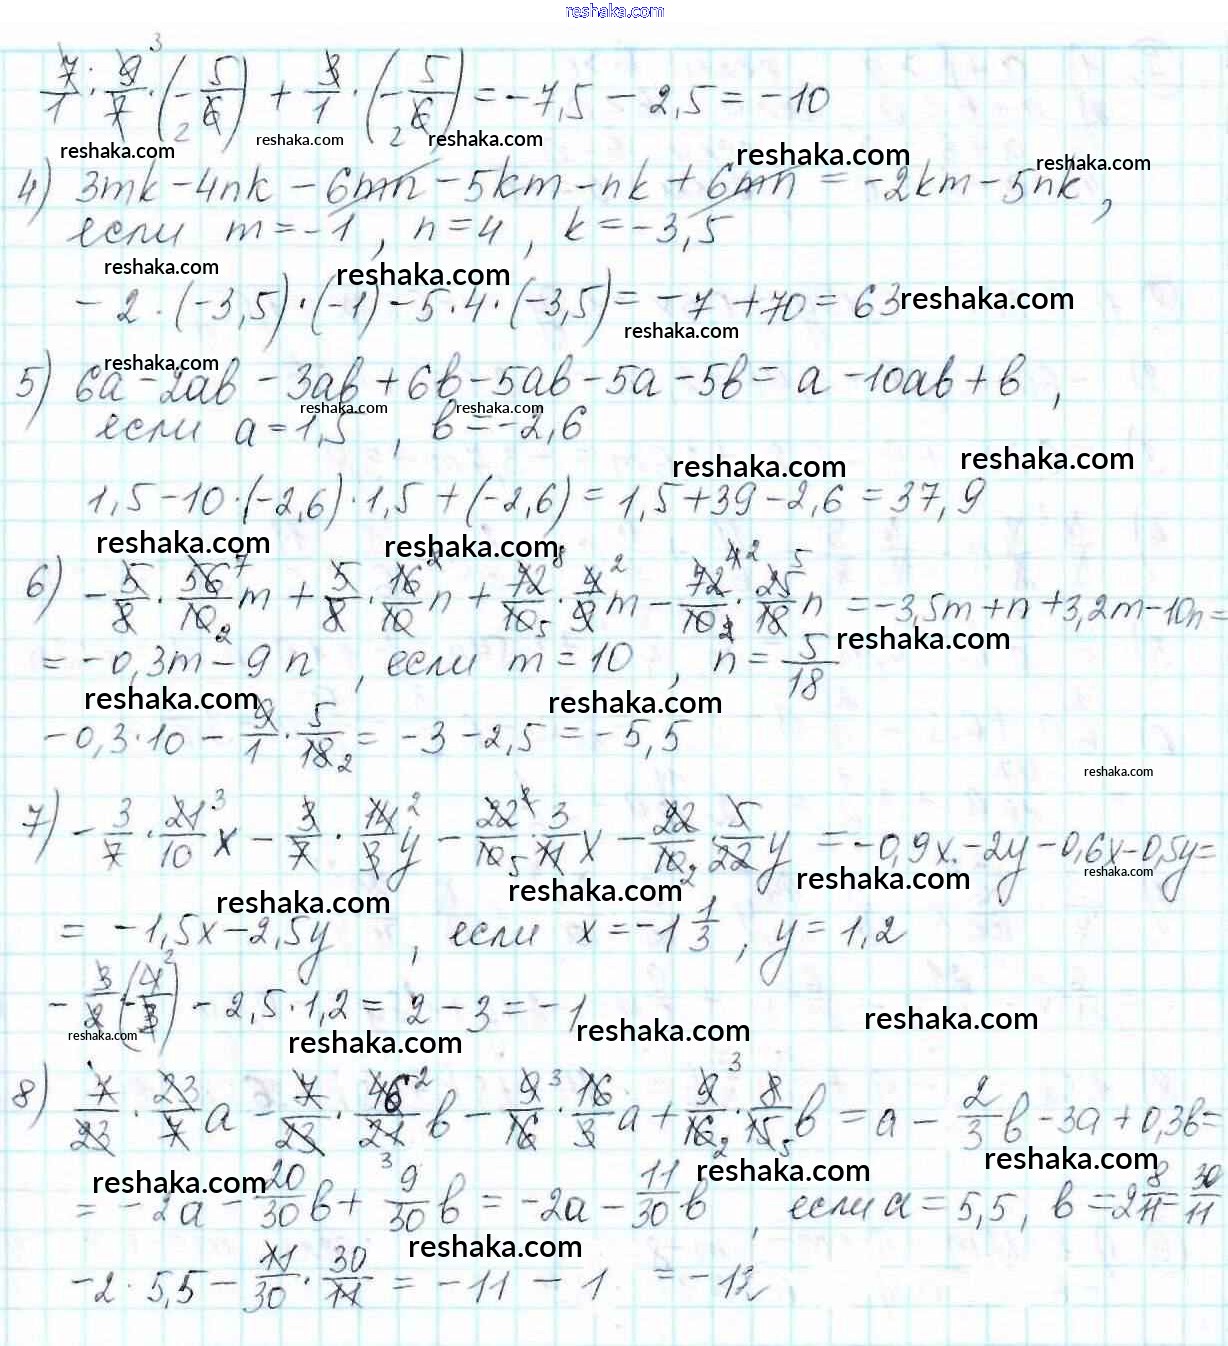 reshaka.com
7/1 · 9/7 · (-5/6) + 3/1 · (-5/6) = -7,5 - 2,5 = -10
reshaka.com reshaka.com reshaka.com reshaka.com reshaka.com
4) 3mk - 4nk - 6mn - 5km - nk + 6mn = -2km - 5nk,
если m = -1, n = 4, k = -3,5
reshaka.com reshaka.com
-2 · (-3,5) · (-1) - 5 · 4 · (-3,5) = -7 + 70 = 63
reshaka.com reshaka.com
reshaka.com
5) 6a - 2ab - 3ab + 6b - 5ab - 5a - 5b = a - 10ab + b,
reshaka.com reshaka.com
если a = 1,5, b = -2,6
reshaka.com reshaka.com
1,5 - 10 · (-2,6) · 1,5 + (-2,6) = 1,5 + 39 - 2,6 = 37,9
reshaka.com reshaka.com
6) -5/8 · 56/10 m + 5/8 · 16/10 n + 72/10 · 4/9 m - 72/10 · 25/18 n = -3,5m + n + 3,2m - 10n =
reshaka.com
= -0,3m - 9n, если m = 10, n = 5/18
reshaka.com reshaka.com
-0,3 · 10 - 9/1 · 5/18 = -3 - 2,5 = -5,5
reshaka.com
7) -3/7 · 21/10 x - 3/7 · 14/3 y - 22/10 · 3/11 x - 22/10 · 5/22 y = -0,9x - 2y - 0,6x - 0,5y =
reshaka.com reshaka.com reshaka.com reshaka.com
= -1,5x - 2,5y, если x = -1 1/3, y = 1,2
-3/2 (-4/3) - 2,5 · 1,2 = 2 - 3 = -1
reshaka.com reshaka.com reshaka.com reshaka.com
8) 7/23 · 23/7 a - 7/23 · 46/21 b - 9/16 · 16/3 a + 9/16 · 8/15 b = a - 2/3 b - 3a + 0,3b =
reshaka.com reshaka.com reshaka.com
= -2a - 20/30 b + 9/30 b = -2a - 11/30 b, если a = 5,5, b = 2 8/11 = 30/11
reshaka.com
-2 · 5,5 - 11/30 · 30/11 = -11 - 1 = -12